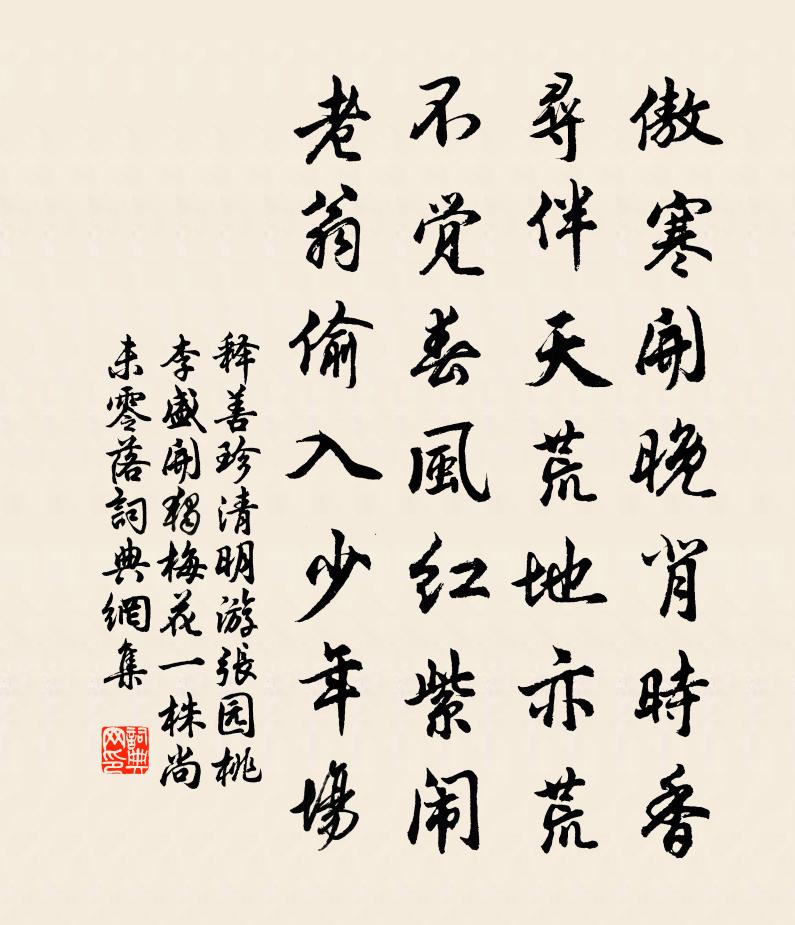 傲寒開晚肖時香
尋伴天荒地亦荒
不觉春風红紫闹
老翁偷入少年場
释善珍清明游張园桃
李盛開獨梅花一株尚
未零落詞典網集
詞典网印